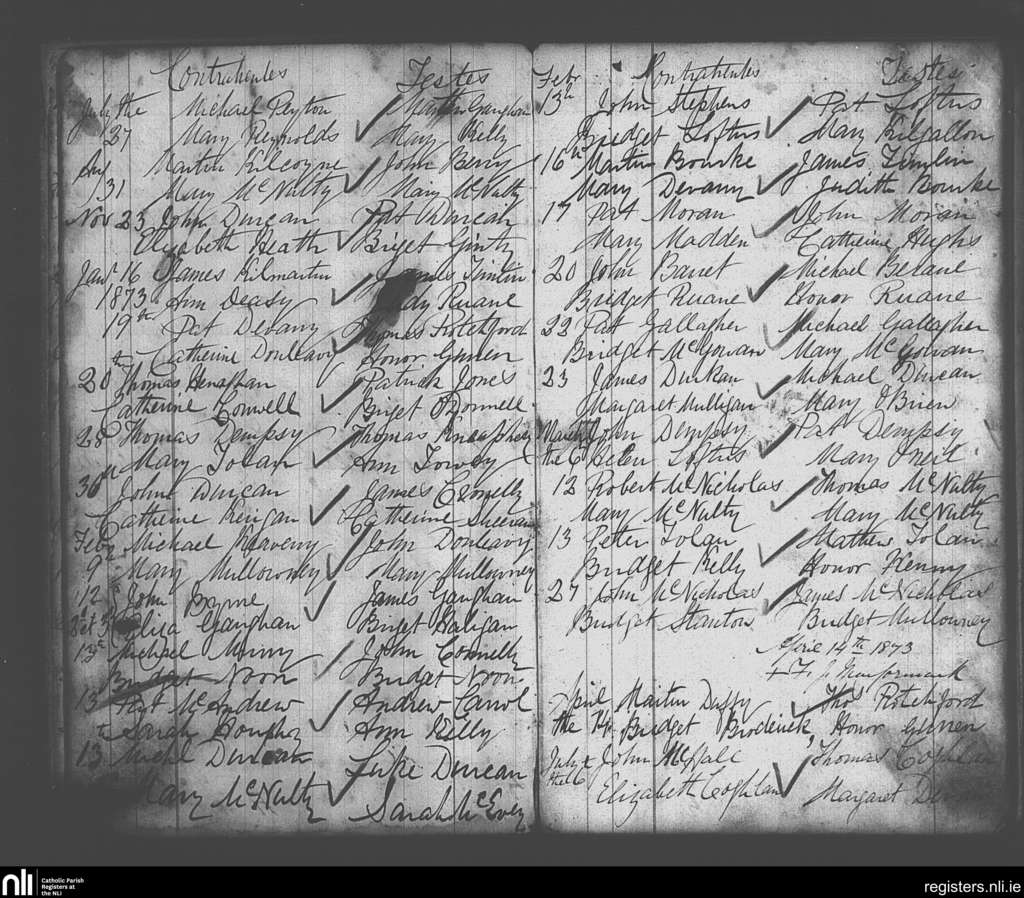 Contrahentes Testes
July the Michael Peyton Martin Gaughan
27 Mary Reynolds Mary Kelly
Martin Kilcoyne John Berry
31 Mary McNulty Mary McNulty
Nov 23 John Duncan Pat Duncan
Elizabeth Heath Briget Ginty
Jany 16 James Kilmartin James Timlin
1873 Ann Deasy Ruane
19th Pat Devany Thomas Rotchford
Catherine Donleavy Honor
20th Thomas Henaghan Patrick Jones
Catherine Conwell Briget O'Donnell
28 Thomas Dempsy Thomas
Mary Tolan Ann Towey
30th John Duncan James Connelly
Catherine Reigan Catherine
Feby Michael John Donleavy
9th Mary Mullowney Mary Mullowney
12 John Byrne James Gaughan
Eliza Gaughan Briget Haligan
Michael John Connelly
Bridget Noon Bridget Noon
13 Pat McAndrew Andrew Carrol
Sarah Ann Kelly
13 Michl Duncan Luke Duncan
Mary McNulty Sarah McEvey
Febr Contrahentes Testes
13th John Stephens Pat Loftus
Bridget Loftus Mary Kilgallon
16th Martin Bourke James Timlin
Mary Devany Judith Bourke
17 Pat Moran John Moran
Mary Madden Catherine Hughs
20 John Barret Michael Berane
Bridget Ruane Honor Ruane
22 Pat Gallagher Michael Gallagher
Bridget McGowan Mary McGowan
23 James Durkan Michael Duncan
Margaret Mulligan Mary O'Brien
March John Dempsy Pat Dempsy
the 6 Helen Loftus Mary Neil
12 Robert McNicholas Thomas McNulty
Mary McNulty Mary McNulty
13 Peter Tolan Mathew Tolan
Bridget Kelly Honor Henny
27 John McNicholas James McNicholas
Bridget Stanton Bridget Mullowney
April 14th 1873
+ F. J.
April Martin Duffy Thos Rotchford
the 14 Bridget Broderick Honor
July John McHale Thomas Coghlan
the 6 Elizabeth Coghlan Margaret
nli Catholic Parish
Registers at
the NLI
registers.nli.ie